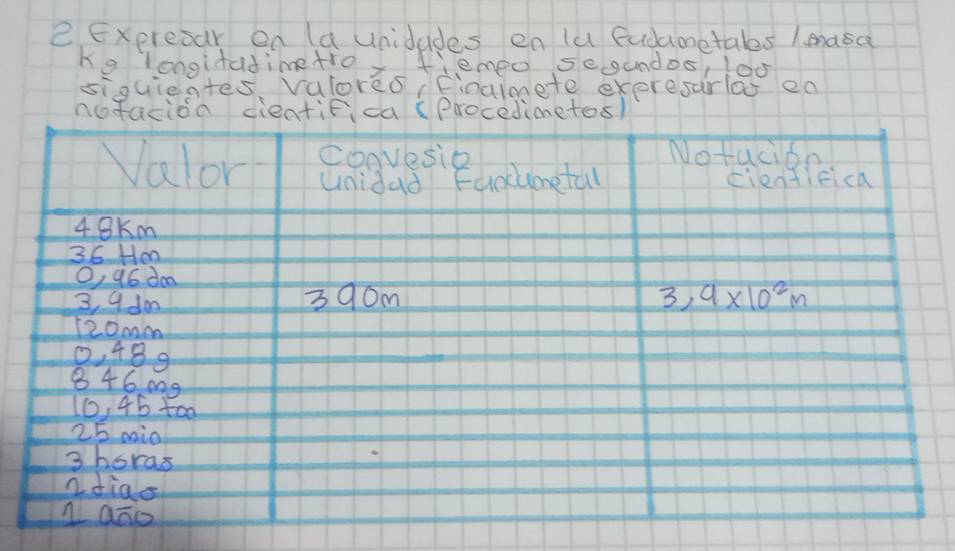 2 Expresar en la unidades en la fudametales /masa
Kg longitudimetro, tiempo segundos, los
siguientes valores, finalmete expresarlos en
notación cientifica (Procedimetos)
Valor Convesio Notación
unidad Fundumetal cientifica
48Km
36 Hm
0,96dm
3,9dm 390m 3,9x10²m
120mm
0,48g
846mg
10,45 ton
25 min
3 horas
2 dias
1 año